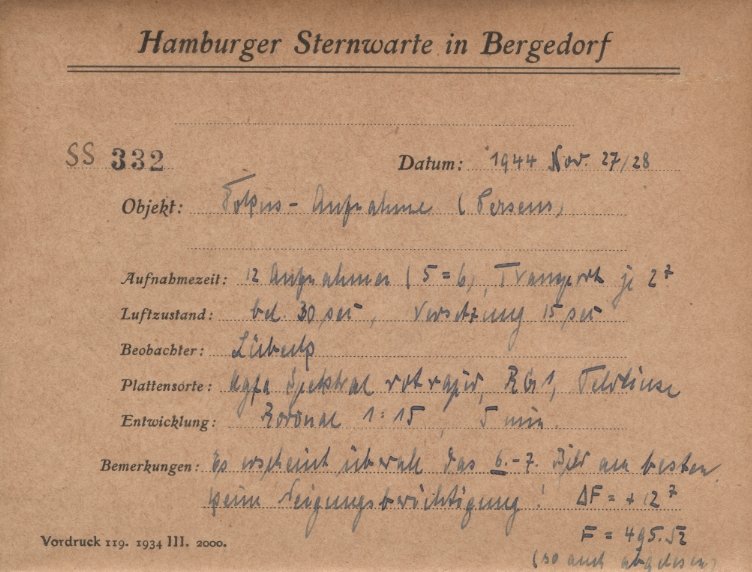 Hamburger Sternwarte in Bergedorf
SS 332 Datum: 1944 Nov. 27/28
Objekt: Fokus-Aufnahme (Perseus)
Aufnahmezeit: 12 Aufnahmen (5=6), Transport je 2
Luftzustand: bel. 30 sec, Versetzung 15 sec
Beobachter:
Plattensorte: Agfa Spektral rot rapid, RG1, Feldlinse
Entwicklung: Rodinal 1:15, 5 min.
Bemerkungen: Es erscheint überall das 6.-7. Bild am besten
keine Neigungsberichtigung! ΔF = +12
F = 495.52
(so auch abgelesen)
Vordruck 119. 1934 III. 2000.